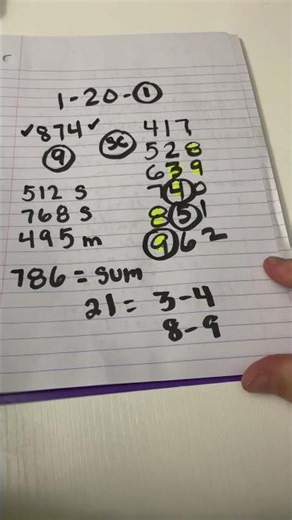 1-20-1
✓874✓
9
SC
417
528
639
740
851
962
512 s
768 s
495 m
786 = sum
21 = 3-4
8-9